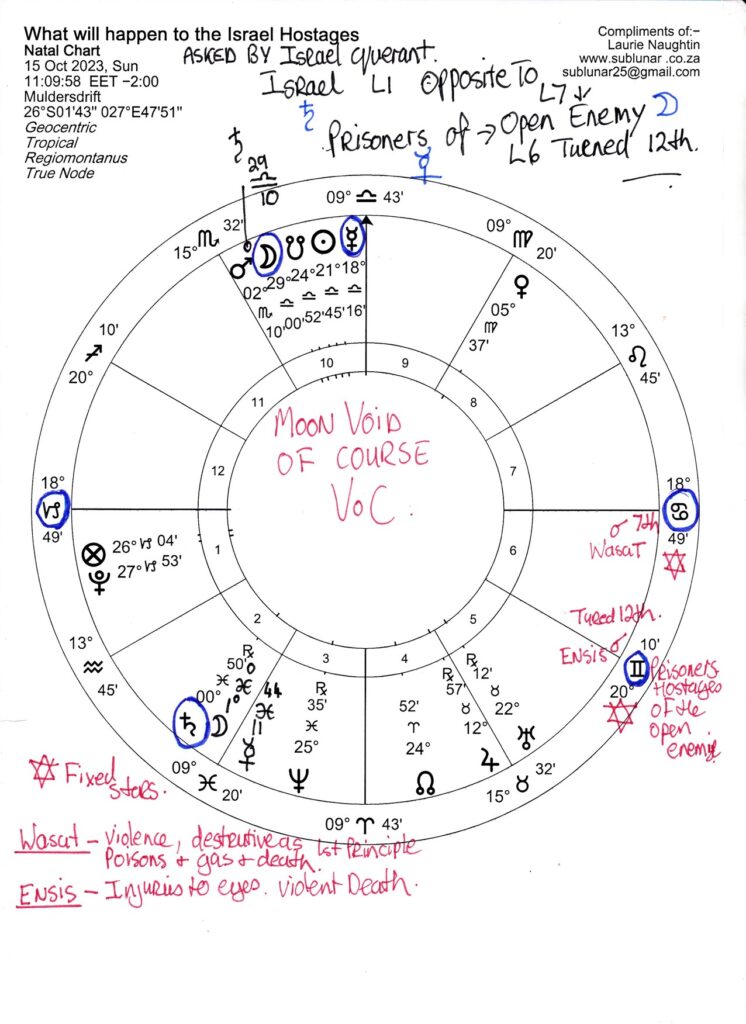 What will happen to the Israel Hostages
Natal Chart
15 Oct 2023, Sun
11:09:58 EET -2:00
Muldersdrift
26°S01'43" 027°E47'51"
Geocentric
Tropical
Regiomontanus
True Node
Compliments of:-
Laurie Naughtin
www.sublunar.co.za
sublunar25@gmail.com
ASKED BY Israel querant.
Israel L1 Opposite To L7
♄
Prisoners of → Open Enemy ☽
☿
L6 Turned 12th.
♄
29
♎
10
09° ♎ 43'
15° ♏ 32'
09° ♍ 20'
♂ ☽ ☋ ☉ ☿
02° 29° 24° 21° 18°
♏ ♎ ♎ ♎ ♎
10' 00' 52' 45' 16'
♀
05°
♍
37'
10'
♐
20°
13°
♌
45'
10
9
11
8
12
7
1
6
2
5
3
4
MOON VOID
OF COURSE
VoC.
18°
♑
49'
18°
♋
49'
☌ 7th
Wasat
⊗ 26° ♑ 04'
♇ 27° ♑ 53'
Tured 12th.
Ensis ☌
10'
♊
20°
Prisoners
Hostages
of the
open
enemy
13°
♒
45'
♄ 00° ♓ 50' ℞
☽ 1° ♓ 0
☿ 11 ♓ 44
♆ 25° ♓ 35' ℞
☊ 24° ♈ 52'
♃ 12° ♉ 57' ℞
♅ 22° ♉ 12' ℞
09° ♓ 20'
09° ♈ 43'
15° ♉ 32'
Fixed
stars.
Wasat - violence, destrutive as 1st Principle
Poisons + gas + death.
Ensis - Injuries to eyes. violent Death.